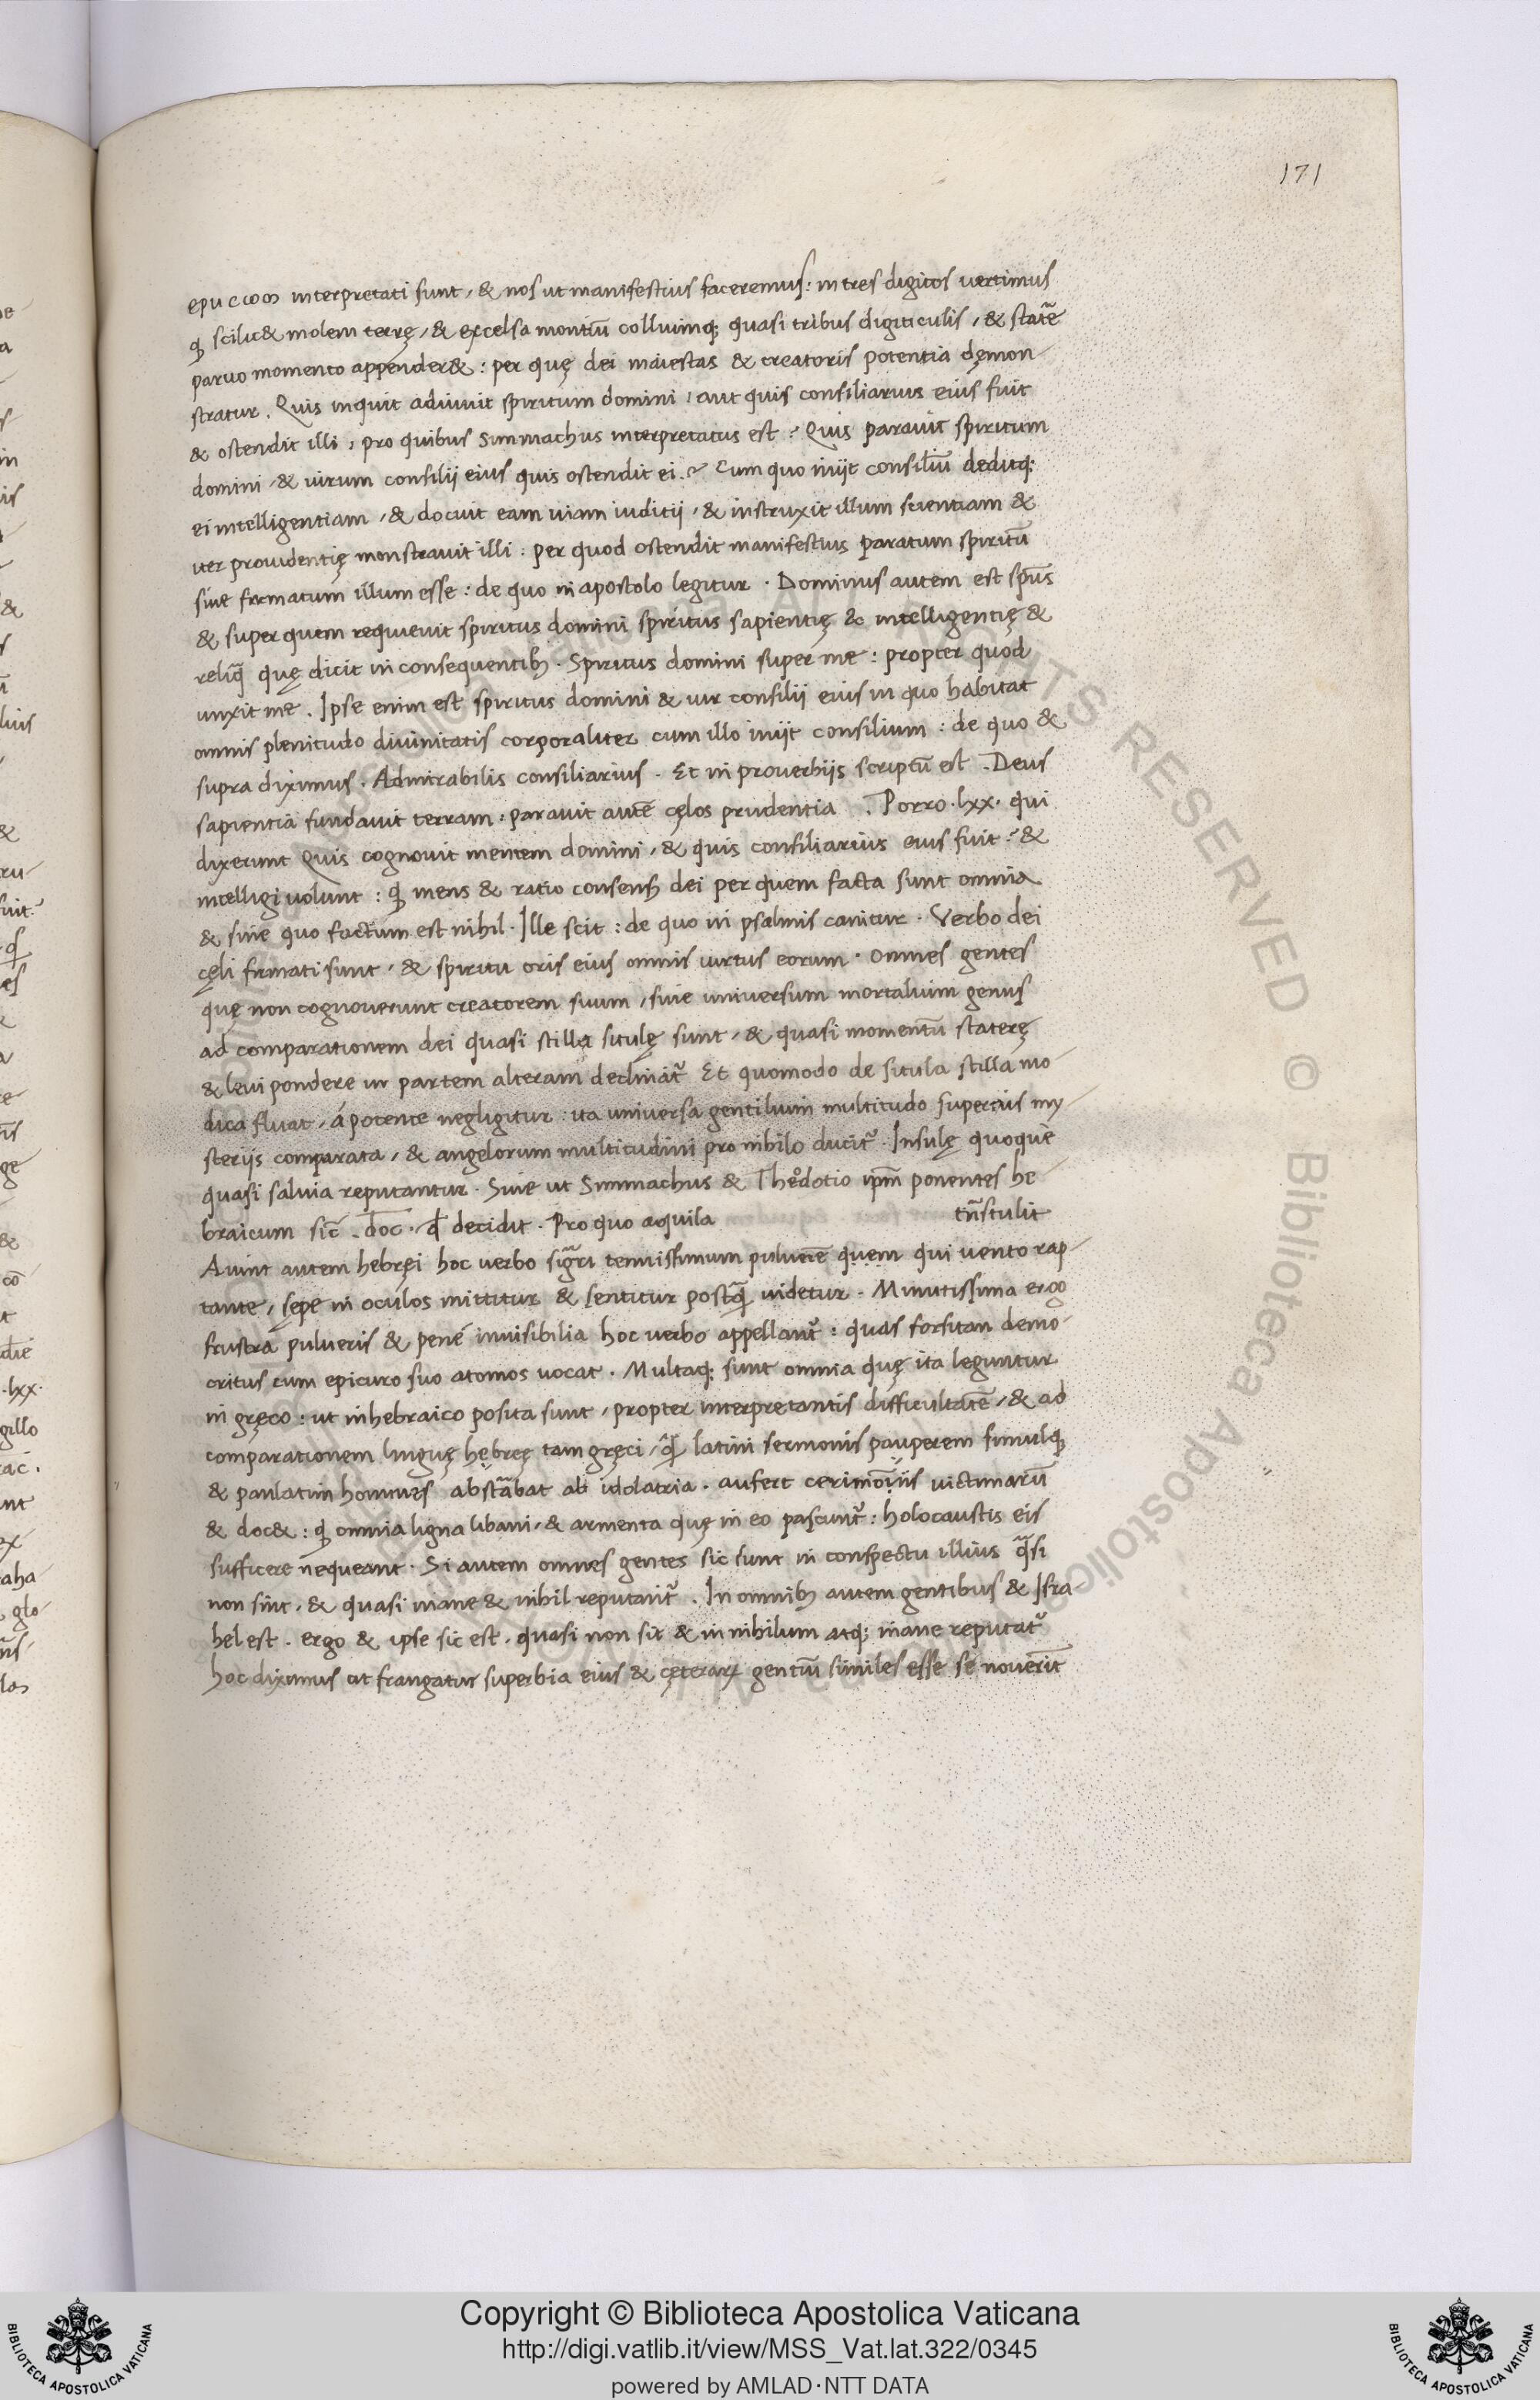 171
epu εωσ interpretati sunt, & nos ut manifestius faceremus: in tres digitos vertimus
ꝙ scilic& molem terrę, & excelsa montiū colluimq; quasi tribus digiticulis, & statē̃
paruo momento appender&: per quę dei maiestas & creatoris potentia dęmon-
stratur. Quis inquit adiuuit spiritum domini: aut quis consiliarius eius fuit
& ostendit illi, pro quibus Simmachus interpretatus est: Quis parauit spiritum
domini, & uirum consilij eius quis ostendit ei? Cum quo iniit consiliū deditq;
ei intelligentiam, & docuit eam uiam iuditij, & instruxit illum scientiam &
iter prouidentię monstrauit illi: per quod ostendit manifestius paratum spiritū
siue firmatum illum esse: de quo in apostolo legitur. Dominus autem est sp̄us
& super quem requieuit spiritus domini spiritus sapientię & intelligentię &
reliq̃ quę dicit in consequentib; Spiritus domini super me: propter quod
unxit me. Ipse enim est spiritus domini & uir consilii eius in quo habitat
omnis plenitudo diuinitatis corporaliter cum illo iniit consilium: de quo &
supra diximus. Admirabilis consiliarius. Et in prouerbijs scriptū est. Deus
sapientia fundauit terram: parauit autē cęlos prudentia. Porro.lxx. qui
dixerunt Quis cognouit mentem domini, & quis consiliarius eius fuit? &
intelligi uolunt: ꝙ mens & ratio consens; dei per quem facta sunt omnia
& sine quo factum est nihil. Ille scit: de quo in psalmis canitur. Verbo dei
cęli firmati sunt, & spiritu oris eius omnis uirtus eorum. omnes gentes
quę non cognouerunt creatorem suum, siue universum mortalium genus
ad comparationem dei quasi stilla situlę sunt, & quasi momentū staterę
& leui pondere in partem alteram declinat̃ Et quomodo de situla stilla mo-
dica fluat, á potente negligitur: ita universa gentilium multitudo supernis my-
sterijs comparata, & angelorum multitudini pro nihilo ducit̃ Insulę quoque
quasi saluia reputantur. Siue ut Simmachus & Theodotio ip̄m ponentes he-
braicum sic̄ . d̄oc . qđ decidit. Pro quo aquila tñstulit
Aiunt autem hebręi hoc uerbo sig̃ri tenuissimum puluerē quem qui uento rap-
tante, sępe in oculos mittitur & sentitur postq̃ uidetur. Minutissima ergo
frustra pulueris & pené inuisibilia hoc uerbo appellant̃: quas forsitan demo-
critus cum epicuro suo atomos uocat. Multaq; sunt omnia quę ita leguntur
in gręco: ut in hebraico posita sunt, propter interpretantis difficultatē, & ad
comparationem linguę hębreę tam gręci, q̃ latini sermonis pauperem simulq;
& paulatim homines abstãbat ab idolatria. aufert cerimōijs uictimarū
& doc&: ꝙ omnia ligna libani, & armenta quę in eo pascunt̃: holocaustis eis
sufficere nequeant. Si autem omnes gentes sic sunt in conspectu illius q̃si
non sint, & quasi inane & nihil reputant̃. In omnib; autem gentibus & Isra-
hel est. ergo & ipse sic est, quasi non sit & in nihilum atq; inane reputat̃
hoc diximus ut frangatur superbia eius & cęterarꝝ gentiū similes esse se nouerīt
Copyright © Biblioteca Apostolica Vaticana
http://digi.vatlib.it/view/MSS_Vat.lat.322/0345
powered by AMLAD·NTT DATA